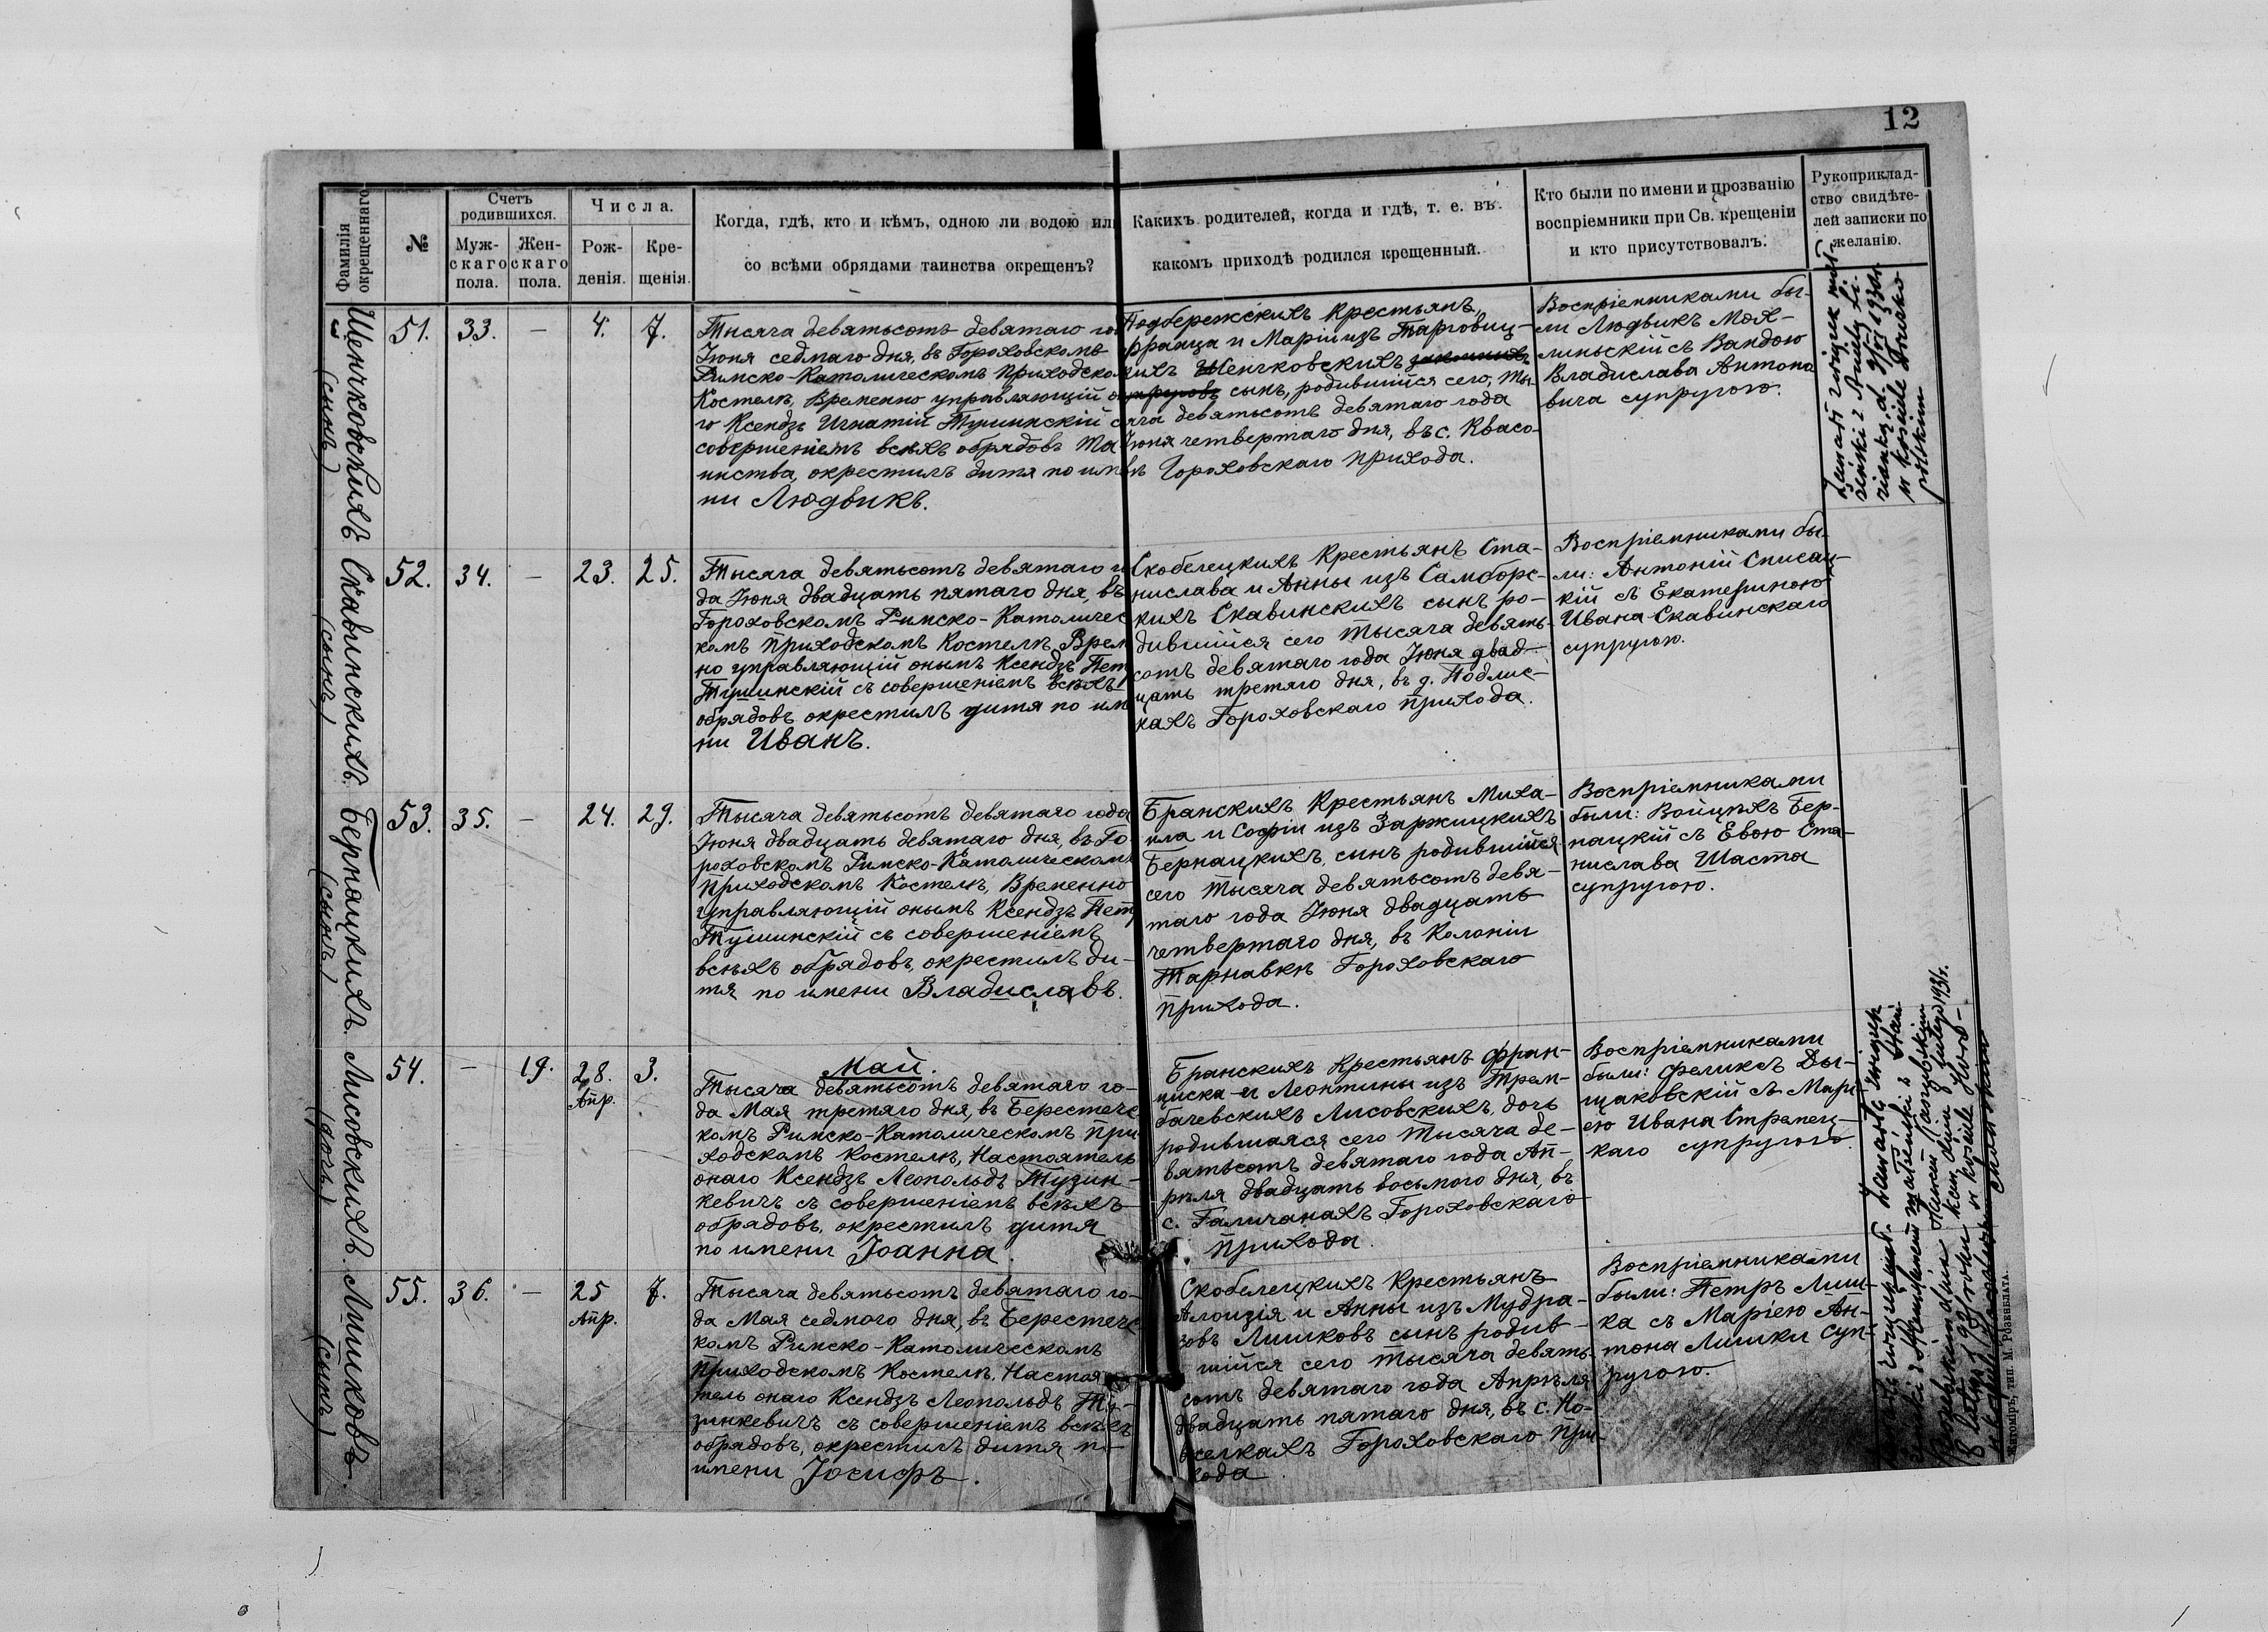 12
Фамилія окрещеннаго
№
Счетъ родившихся.
Муж-
скаго
пола.
Жен-
скаго
пола.
Числа.
Рож-
денія.
Кре-
щенія.
Когда, гдѣ, кто и кѣмъ, одною ли водою ил
со всѣми обрядами таинства окрещенъ?
Какихъ родителей, когда и гдѣ, т. е. въ
какомъ приходѣ родился крещенный.
Кто были по имени и прозванію
воспріемники при Св. крещеніи
и кто присутствовалъ.
Рукоприклад-
ство свидѣте-
лей записки по
желанію.
Щенчковскихъ
(сынъ)
51.
33.
—
4.
7.
Тысяча девятьсотъ девятаго го
Іюня седмаго дня, въ Гороховскомъ
Римско-Католическомъ Приходско
Костелѣ, Временно управляющій о
го Ксендзъ Игнатій Тушинскій с
совершеніемъ всѣхъ обрядовъ Та
инства, окрестилъ дитя по им
ни Людвикъ.
Подбережскихъ Крестьянъ,
Франца и Маріи изъ Тарговиц-
кихъ Щенчковскихъ законныхъ
супруговъ сынъ, родившійся сего, ты-
яча девятьсотъ девятаго года
Іюня четвертаго дня, въ с. Квасо-
вѣ Гороховскаго прихода.
Воспріемниками бы-
ли Людвикъ Мол-
линьскій съ Вандою
Владислава Антоно
вича супругою.
Skawińskichъ
52.
34.
—
23.
25.
Тысяча девятьсотъ девятаго г
да Іюня двадцать пятаго дня, въ
Гороховскомъ Римско-Католичес
комъ приходскомъ Костелѣ, Врем
но управляющій онымъ Ксендзъ Пет
Тушинскій съ совершеніемъ всѣхъ
обрядовъ окрестилъ дитя по им
ни Иванъ.
Скобелецкихъ Крестьянъ Ста-
нислава и Анны изъ Самборс-
кихъ Скавинскихъ сынъ ро-
дившійся сего тысяча девять-
сотъ девятаго года Іюня двад-
цать третяго дня, въ д. Подлис-
кахъ Гороховскаго прихода.
Воспріемниками бы-
ли: Антоній Списац-
кій съ Екатериною
Ивана Скавинскаго
супругою.
Бернацкихъ.
(сынъ)
53.
35.
—
24.
29.
Тысяча девятьсотъ девятаго года
Іюня двадцать девятаго дня, въ Го
роховскомъ Римско-Католическомъ
Приходскомъ Костелѣ, Временно
управляющій онымъ Ксендзъ Пет
Тушинскій съ совершеніемъ
всѣхъ обрядовъ, окрестилъ ди-
тя по имени Владиславъ.
Бранскихъ Крестьянъ Миха-
ила и Софіи изъ Заржицкихъ
Бернацкихъ, сынъ родившійся
сего тысяча девятьсотъ девя-
таго года Іюня двадцать
четвертаго дня, въ Колоніи
Тарнавкѣ Гороховскаго
прихода.
Воспріемниками
были: Войцѣхъ Бер-
нацкій съ Евою Ста-
нислава Шаста
супругою.
Лисовскихъ.
(дочь)
54.
—
19.
28.
Апр.
3.
Май.
Тысяча девятьсотъ девятаго го-
да Мая третяго дня, въ Берестечс
комъ Римско-Католическомъ при
ходскомъ Костелѣ, Настоятель
онаго Ксендзъ Леопольдъ Тузин-
кевичъ съ совершеніемъ всѣхъ
обрядовъ, окрестилъ дитя
по имени Іоанна.
Бранскихъ Крестьянъ Фран-
циска и Леонтины изъ Трем-
бачевскихъ Лисовскихъ, дочь
родившаяся сего тысяча де-
вятьсотъ девятаго года Ап-
рѣля двадцать восьмого дня, въ
с. Галичанахъ Гороховскаго
прихода.
Воспріемниками
были: Феликсъ Вы-
щаковскій съ Марі-
ею Ивана Стрепец-
каго супругою.
Лишковъ.
(сынъ)
55.
36.
—
25
Апр.
7.
Тысяча девятьсотъ девятаго го-
да Мая седмого дня, въ Берестечс
комъ Римско-Католическомъ
Приходскомъ Костелѣ, Настоя
тель онаго Ксендзъ Леопольдъ Ту-
зинкевичъ съ совершеніемъ всѣхъ
обрядовъ, окрестилъ дитя по
имени Іосифъ.
Скобелецкихъ Крестьянъ
Алоизія и Анны изъ Мудра-
зовъ Лишковъ сынъ родив-
шійся сего тысяча девять-
сотъ девятаго года Апрѣля
двадцать пятаго дня, въ с.
Гороховскаго при-
хода.
Воспріемниками
были: Петръ Лиш-
ка съ Маріею Ан-
тона Лишки суп-
ругою.
Житоміръ, тип. М. Розенблата.